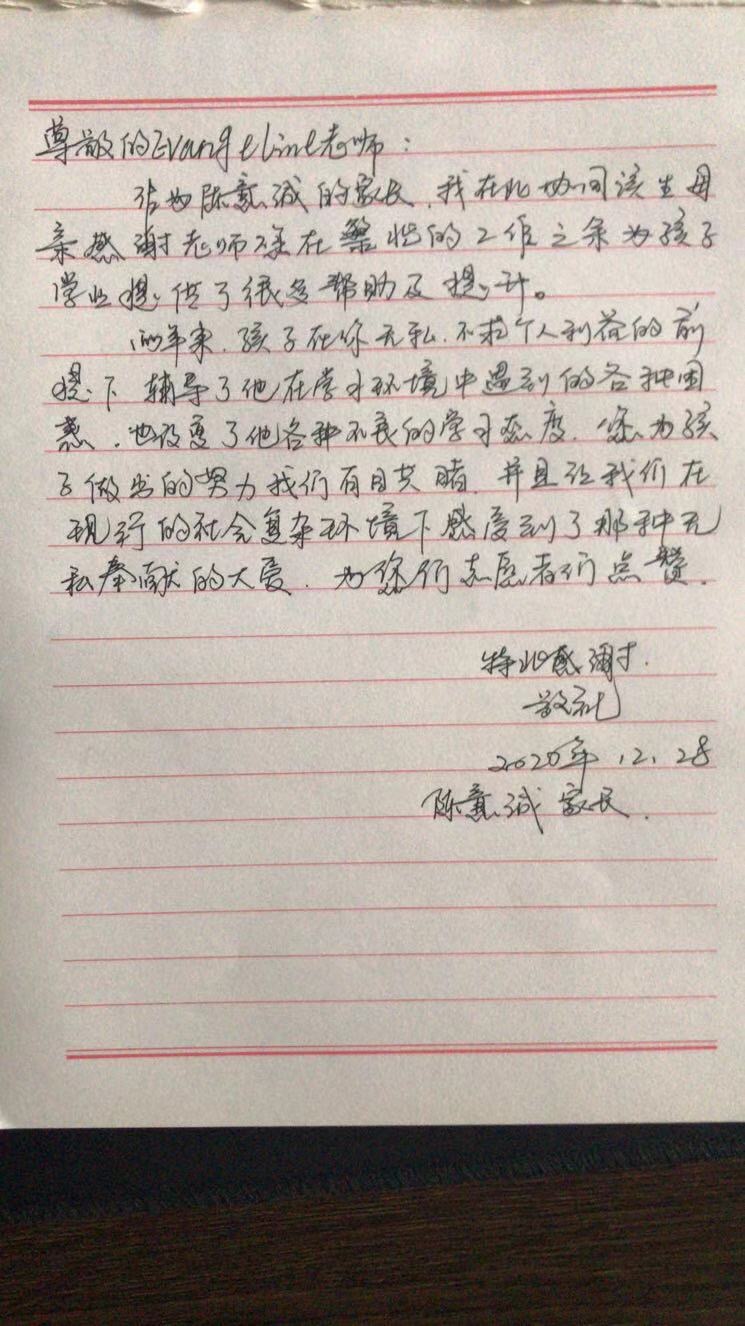 尊敬的Evangeline老师：
作为陈熹诚的家长，我在此协同该生母
亲感谢老师在繁忙的工作之余为孩子
学业提供了很多帮助及提升。
年来，孩子在你无私，不求个人利益的前
提下辅导了他在学习环境中遇到的各种困
惑，也改变了他各种不良的学习态度，您为孩
子做出的努力我们有目共睹，并且让我们在
现行的社会复杂环境下感受到了那种无
私奉献的大爱，为您们志愿者们点赞。
特此感谢.
敬礼
2020年.12.28
陈熹诚 家长.